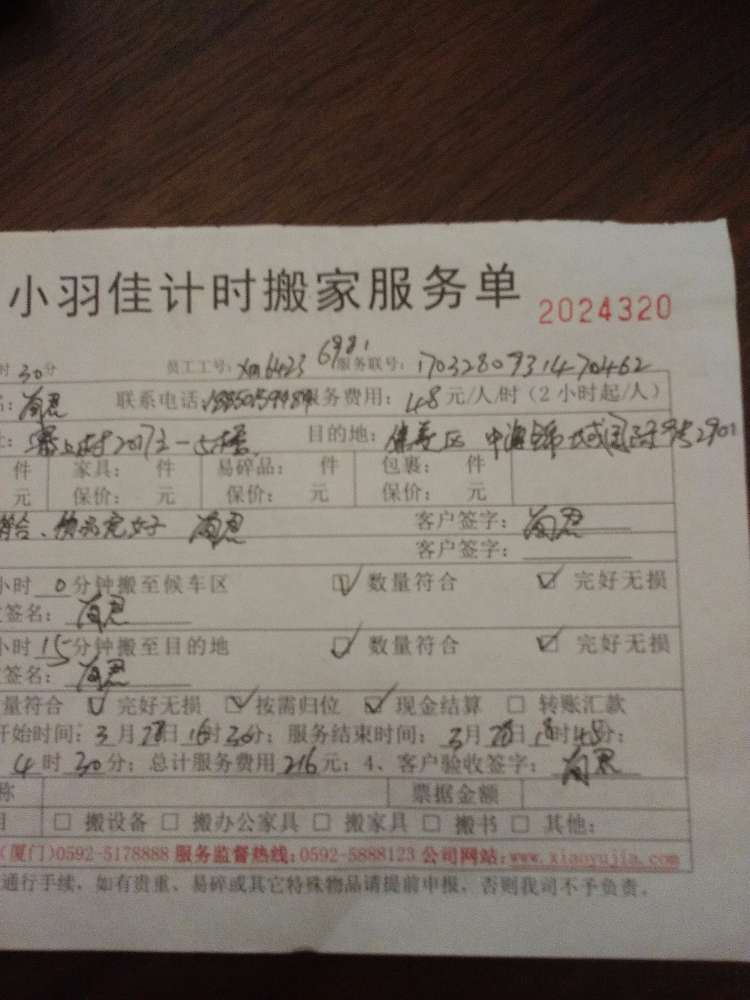 小羽佳计时搬家服务单 2024320
时 30分 员工工号: xm6423 6981 服务联号: 1703280931470462
名: 联系电话: 服务费用: 48元/人/时(2小时起/人)
址: 目的地: 集美区 中海锦城国际 2901
件 家具: 件 易碎品: 件 包裹: 件
元 保价: 元 保价: 元 保价: 元
符合、 完好 客户签字:
客户签字:
小时 0 分钟搬至候车区 ☑ 数量符合 ☑ 完好无损
签名:
小时 15 分钟搬至目的地 ☑ 数量符合 ☑ 完好无损
签名:
量符合 ☑ 完好无损 ☑ 按需归位 ☑ 现金结算 □ 转账汇款
开始时间: 3月28日16时30分; 服务结束时间: 3月28日18时45分;
4时30分; 总计服务费用216元; 4、客户验收签字:
称 票据金额
目 □ 搬设备 □ 搬办公家具 □ 搬家具 □ 搬书 □ 其他:
(厦门)0592-5178888 服务监督热线:0592-5888123 公司网站:www.xiaoyujia.com
通行手续, 如有贵重、易碎或其它特殊物品请提前申报, 否则我司不予负责。